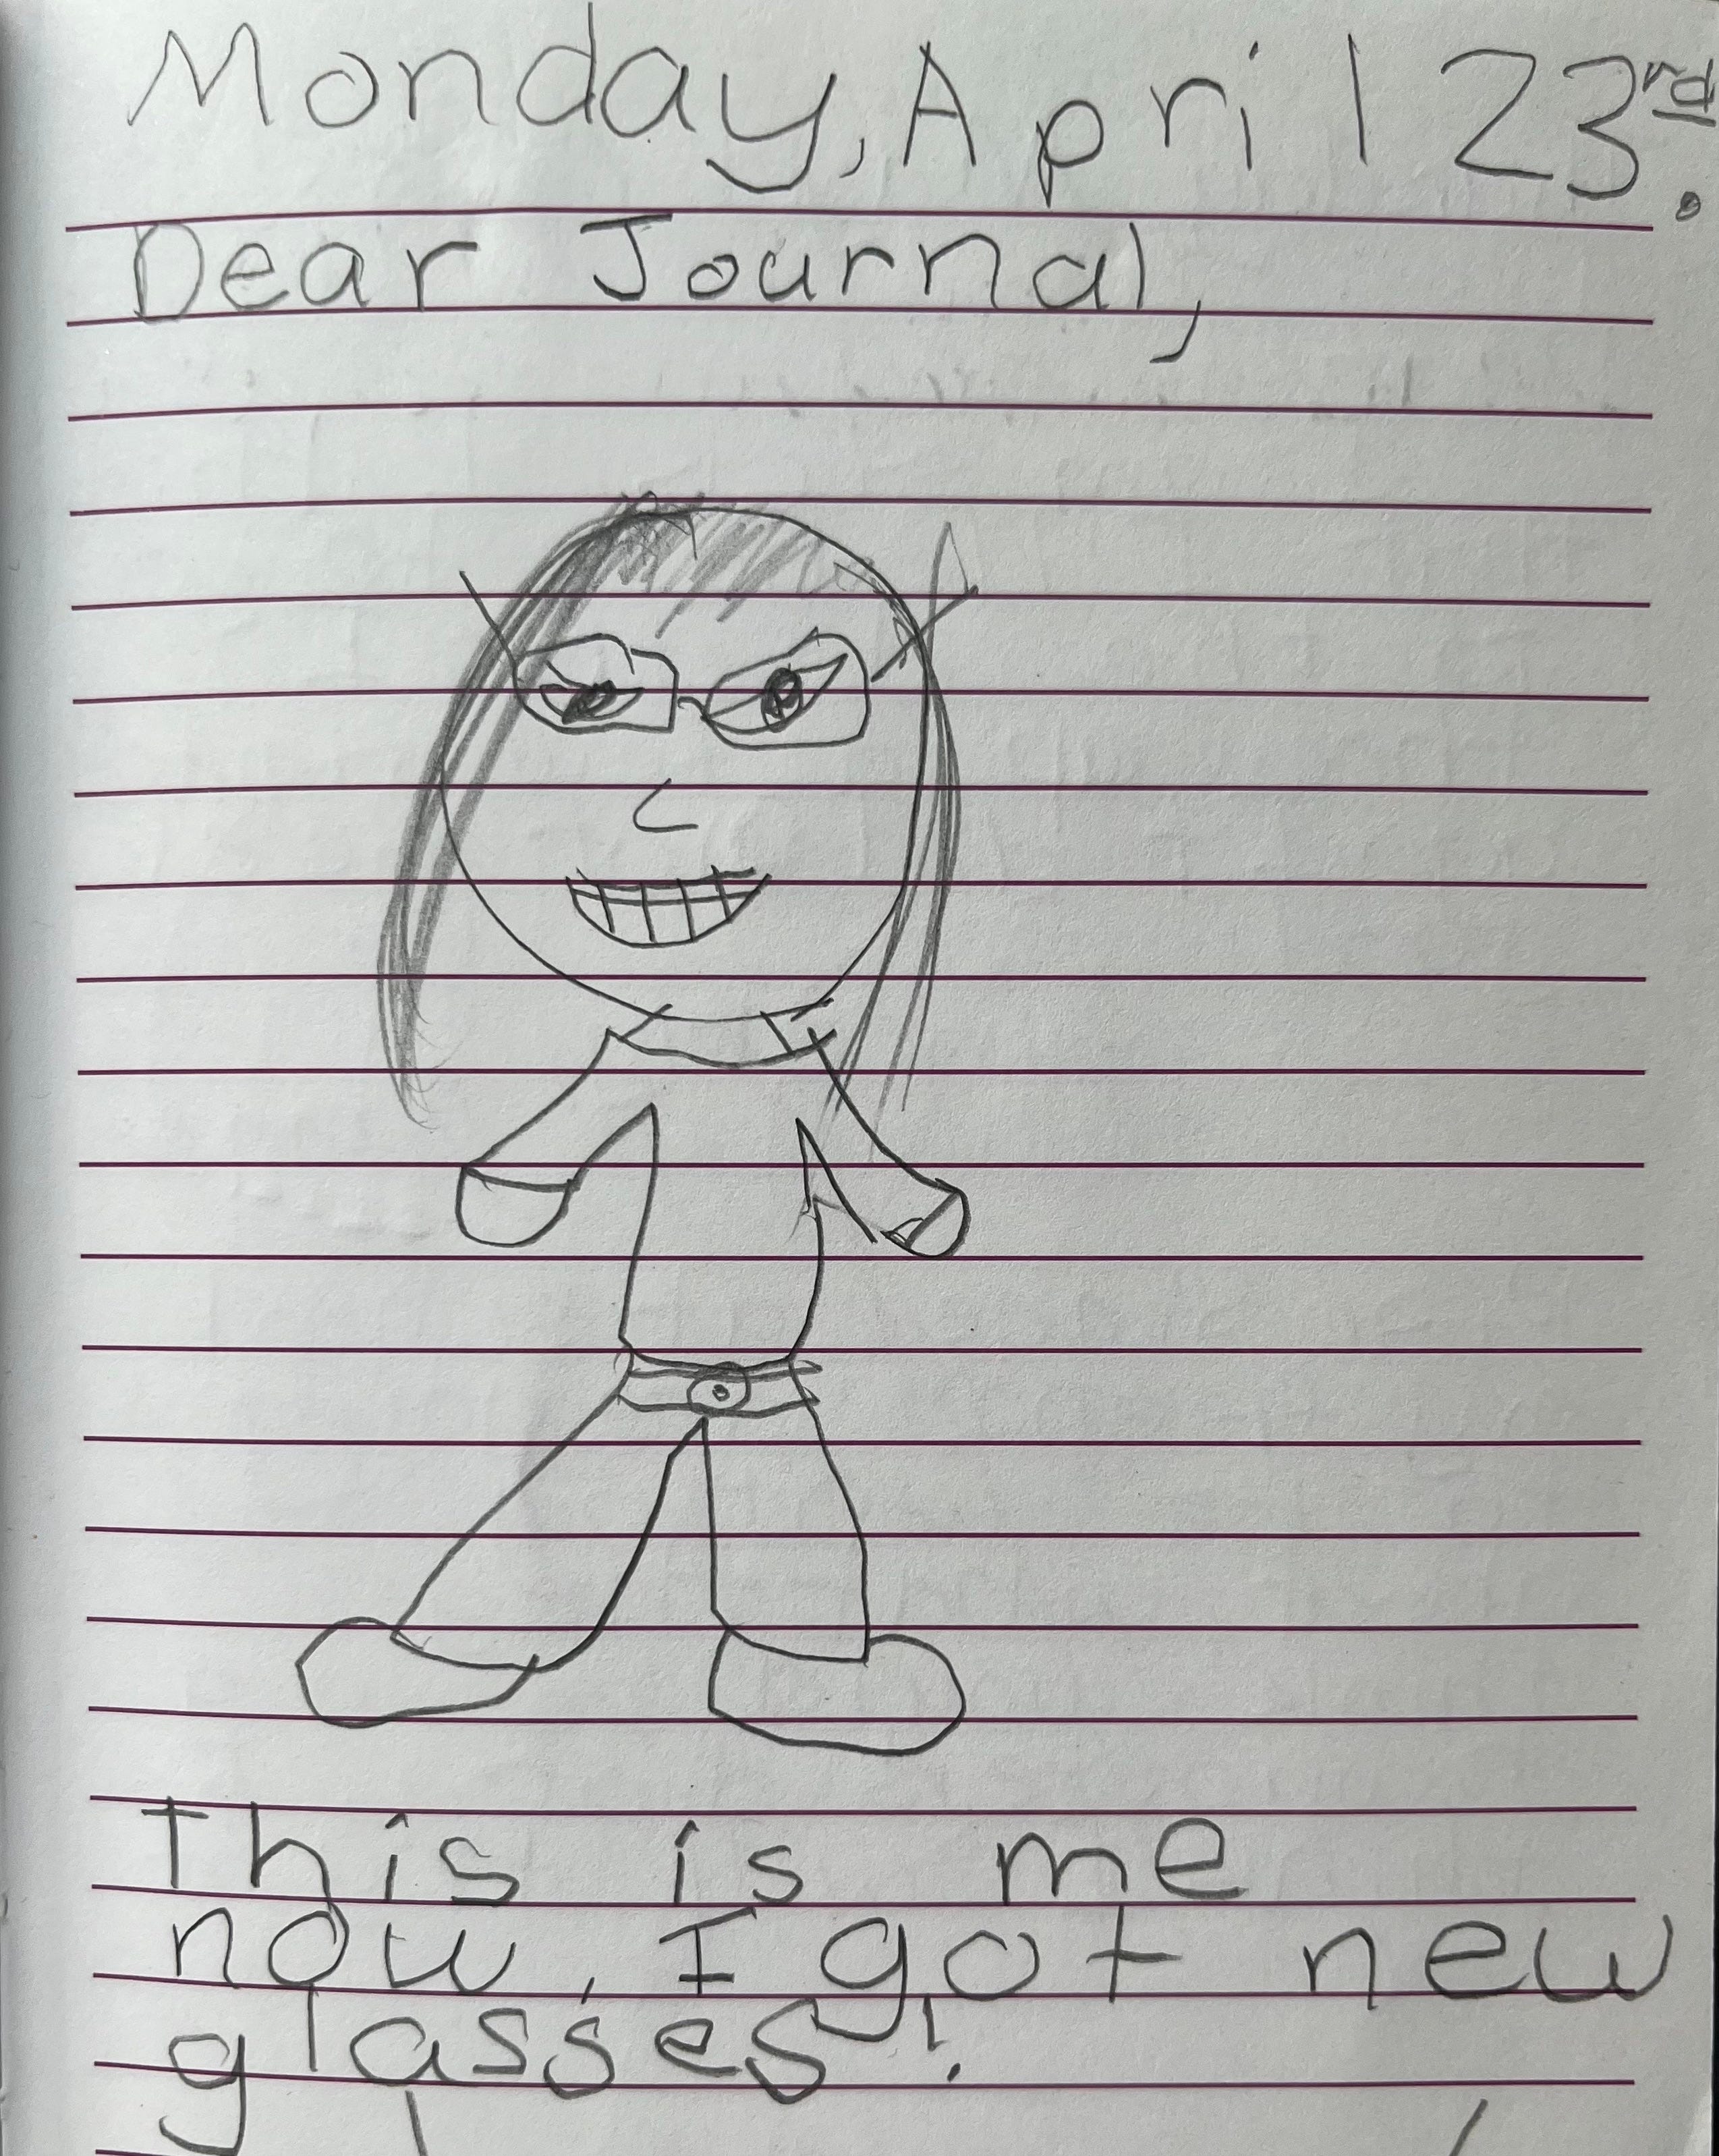 Monday, April 23rd.
Dear Journal,
This is me
now, I got new
glasses!